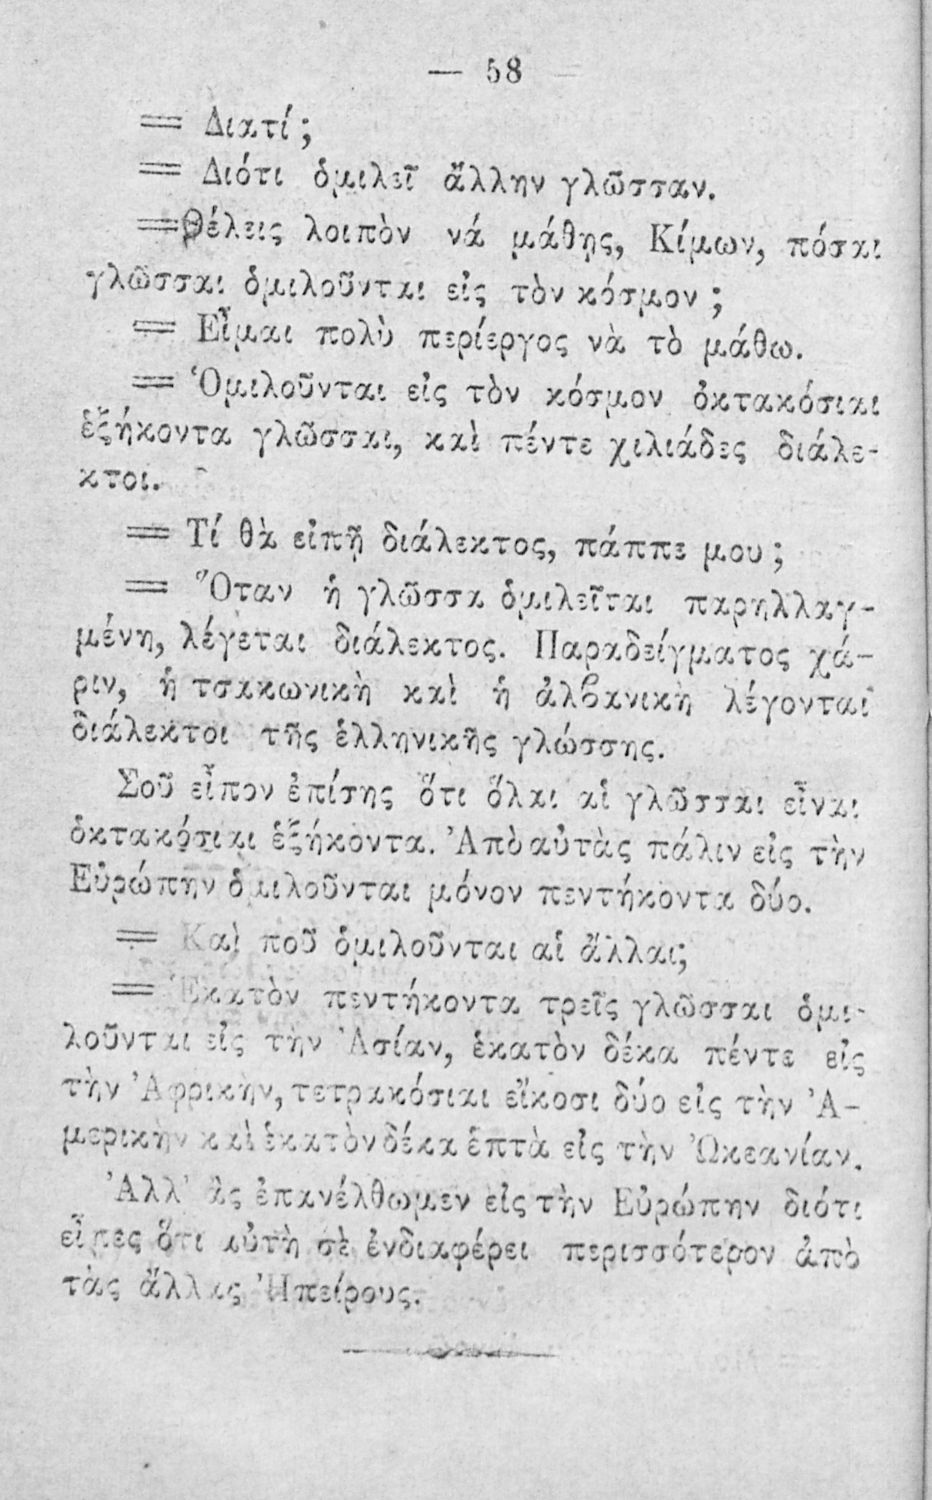 — 58 —
= Διατί ;
= Διότι ὁμιλεῖ ἄλλην γλῶσσαν.
=Θέλεις λοιπὸν νά μάθῃς, Κίμων, πόσαι
γλῶσσαι ὁμιλοῦνται εἰς τὸν κόσμον ;
= Εἶμαι πολὺ περίεργος νὰ τὸ μάθω.
= Ὁμιλοῦνται εἰς τὸν κόσμον ὀκτακόσιαι
ἑξήκοντα γλῶσσαι, καὶ πέντε χιλιάδες διάλε-
κτοι.
= Τί θὰ εἰπῇ διάλεκτος, πάππε μου ;
= Ὅταν ἡ γλῶσσα ὁμιλεῖται παρηλλαγ-
μένη, λέγεται διάλεκτος. Παραδείγματος χά-
ριν, ἡ τσακωνικὴ καὶ ἡ ἀλβανικὴ λέγονται
διάλεκτοι τῆς ἑλληνικῆς γλώσσης.
Σοῦ εἶπον ἐπίσης ὅτι ὅλαι αἱ γλῶσσαι εἶναι
ὀκτακόσιαι ἑξήκοντα. Ἀπὸ αὐτὰς πάλιν εἰς τὴν
Εὐρώπην ὁμιλοῦνται μόνον πεντήκοντα δύο.
= Καὶ ποῦ ὁμιλοῦνται αἱ ἄλλαι;
= Ἑκατὸν πεντήκοντα τρεῖς γλῶσσαι ὁμι-
λοῦνται εἰς τὴν Ἀσίαν, ἑκατὸν δέκα πέντε εἰς
τὴν Ἀφρικὴν, τετρακόσιαι εἴκοσι δύο εἰς τὴν Ἀ-
μερικὴν καὶ ἑκατὸν δέκα ἑπτὰ εἰς τὴν Ὠκεανίαν.
Ἀλλ' ἂς ἐπανέλθωμεν εἰς τὴν Εὐρώπην διότι
εἶπες ὅτι αὐτὴ σὲ ἐνδιαφέρει περισσότερον ἀπὸ
τὰς ἄλλας Ἠπείρους.